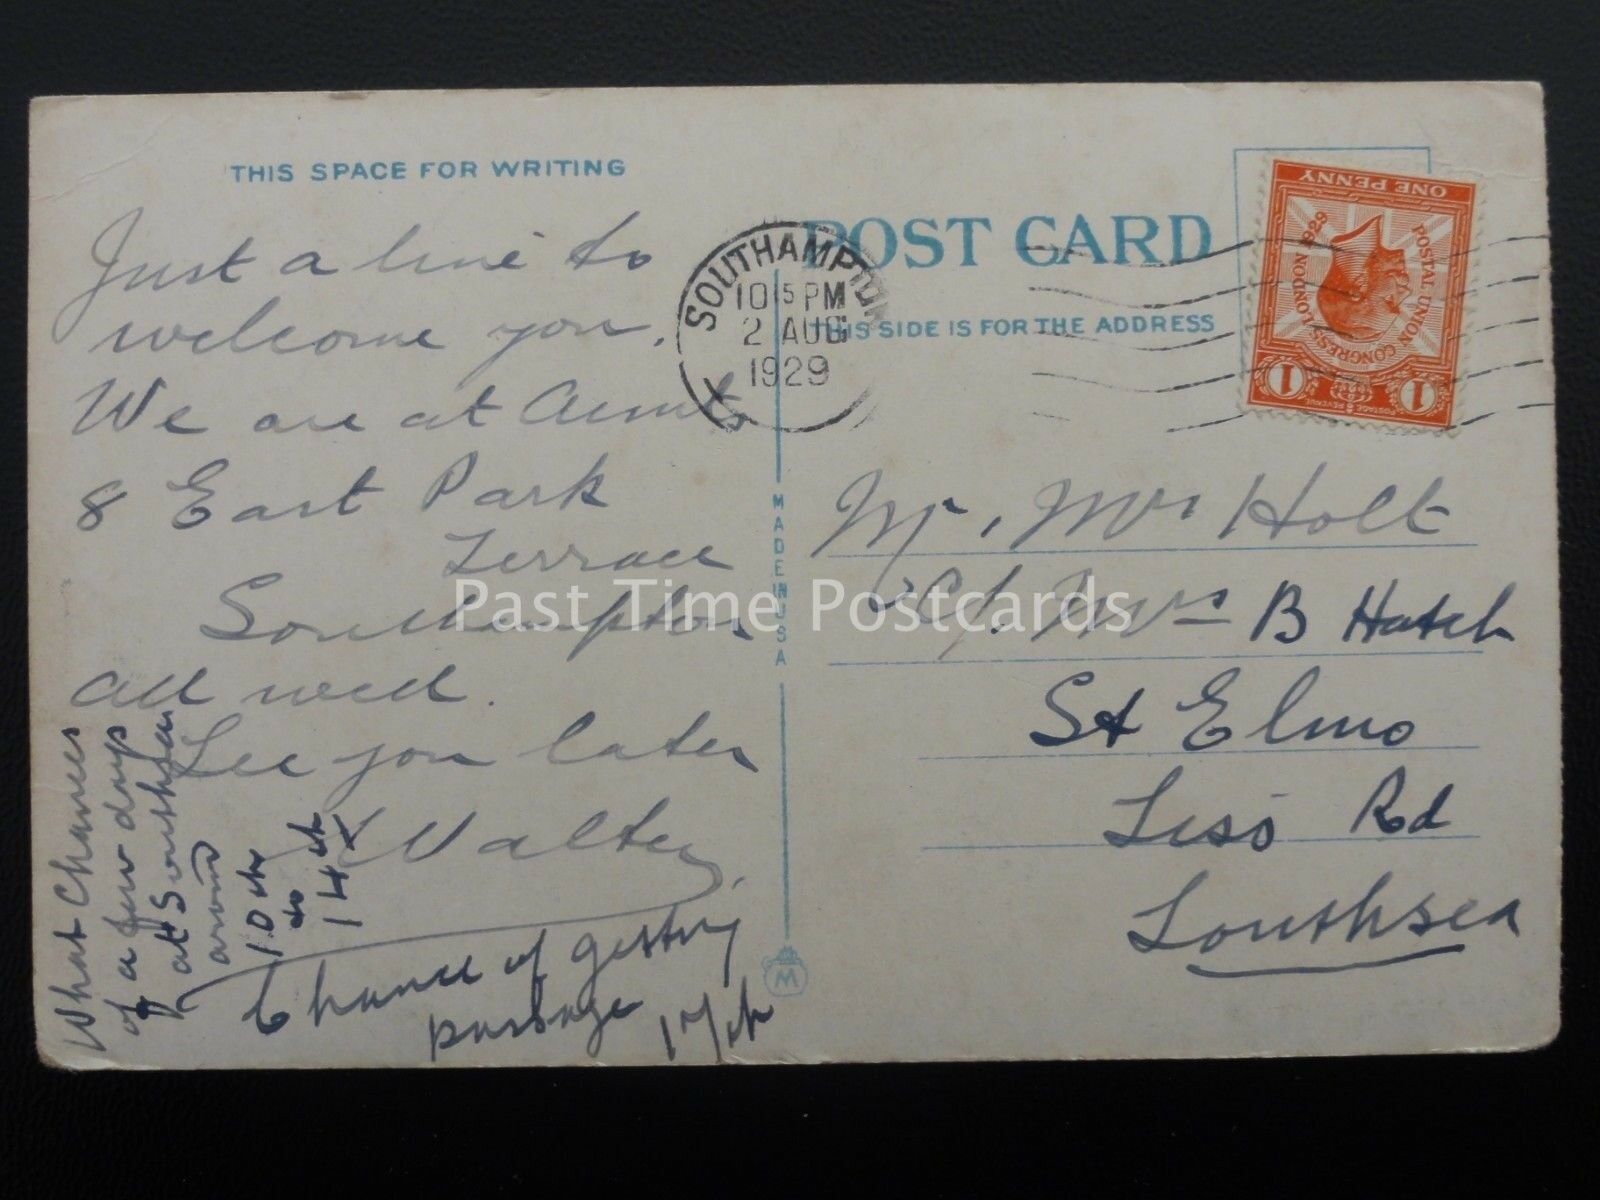 THIS SPACE FOR WRITING
Just a line to
welcome you.
We are at Aunts
8 East Park
Terrace
Southampton
all well.
See you later
Walter
What Chances
of a few days
at Southsea
around
10th
to
14th
Chance of getting
passage 17th
MADE IN USA
M
POST CARD
THIS SIDE IS FOR THE ADDRESS
SOUTHAMPTON
10 15 PM
2 AUG
1929
ONE PENNY
POSTAL UNION CONGRESS
LONDON 1929
POSTAGE REVENUE
1 1
Mr, Mrs Holt
Mrs B Hatch
St Elmo
Rd
Southsea
Past Time Postcards